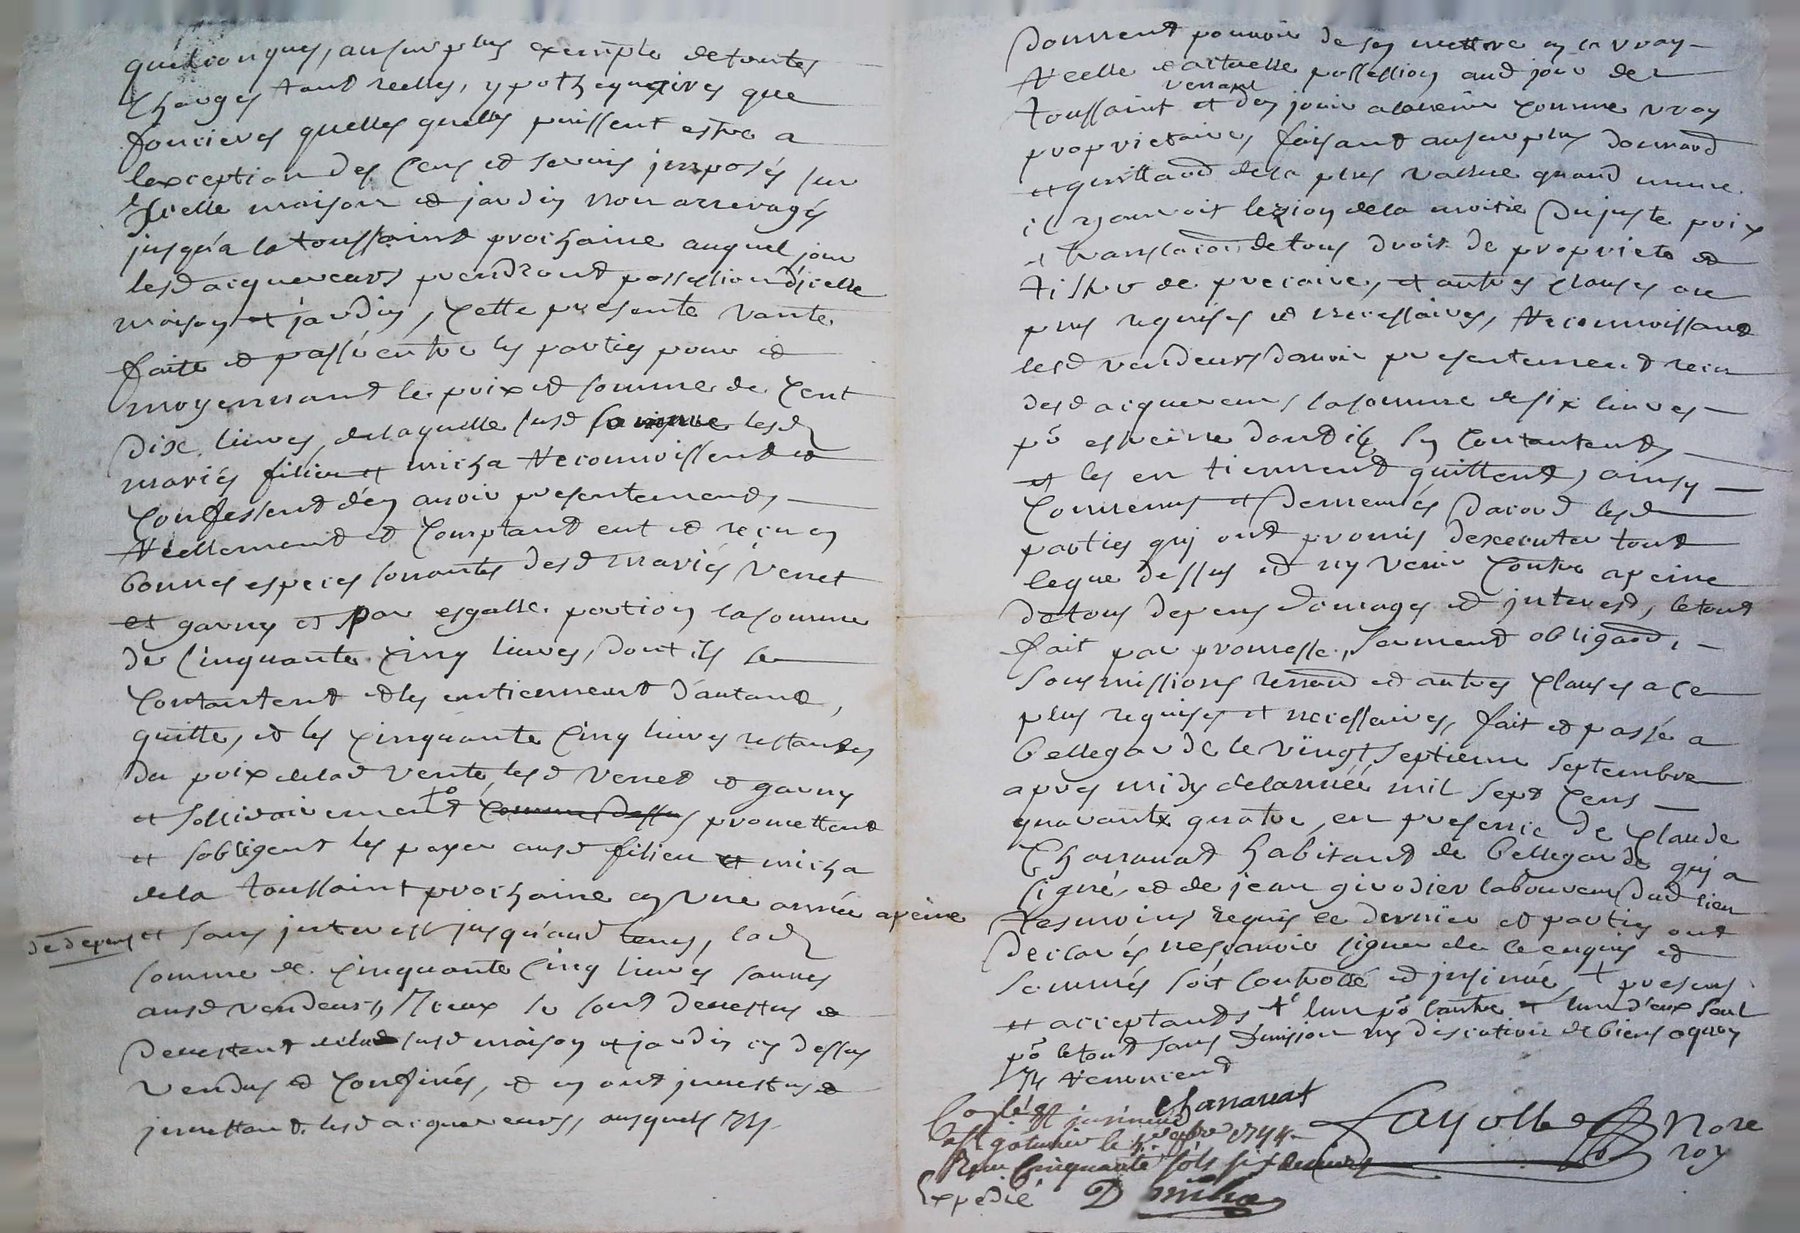 quelconques, au surplus exempte de toutes
charges tant reelles, ypothequaires que
foncieres quelles quelles puissent estre a
lexception des cens et servis imposés sur
jcelle maison et jardin non arreragés
jusqu'a la toussaint prochaine auquel jour
lesd acquereurs prendront possession d'jcelle
maison et jardin, cette presente vante
faite et passé entre les parties pour et
moyennant le prix et somme de cent
dix livres, de laquelle susd somme lesd
mariés filieu et micha reconnoissent et
confessent d'en avoir presentement,
reellement et comptant eut et reçu en
bonnes especes sonantes desd mariés venet
et garny et par esgalle portion la somme
de cinquante cinq livres, dont ils se
contantent et les entiennent d'autant,
quitte, et les cinquante cinq livres restantes
du prix de lad vente, lesd venet et garny
et sollidairement +° comme dessus promettent
et sobligent les payer ausd filieu et micha
de la toussaint prochaine en une année a peine
de depens et sans jnterest jusqu'aud tems, lad
somme de cinquante cinq livres sauves
ausd vendeurs, jceux se sont devestus et
devestent de la susd maison et jardin cy dessus
vendus et confinés, et en ont jnvestus et
jnvettant lesd acquereurs, ausquels jls
donnent pouvoir de sen mettre en la vray
reelle et actuelle possession aud jour de
venant
toussaint et den jouir alavenir comme vray
proprietaires, faisant au surplus donnand
et quittand de la plus vallue quand mime
il y auroit lezion de la moitié du juste prix
et translation de tous droit de proprieté et
tiltre de precaire, et autres clauses a ce
plus requises et necessaires, reconnoissant
lesd vendeurs davoir presentement recu
desd acquereurs la somme de six livres
pr estreine dont ils se contantent
et les en tiennent quittent, ainsy
convenus et demeurés dacord lesd
parties qui ont promis dexecuter tout
leque dessus et ny venir contre a peine
de tous depens domages et jnterest, le tout
fait par promesse, serment obligaon,
soumissions renoaon et autres clauses a ce
plus requises et necessaires, fait et passé a
bellegarde le vingt septieme septembre
apres midy de lannée mil sept cens
quarante quatre, en presence de claude
Charanat habitant de bellegarde qui a
signé et de jean givodier laboureur dud lieu
tesmoins requis ce dernier et parties ont
declarés ne sçavoir signer de ce enquis et
sommés soit controllé et jnsinué, + presens
et acceptants +° lun pr lautre et lun d'eux seul
pr le tout sans division ny discution de biens a quoy
jls renoncent
Charanat
Fayolle Nore
roy
Conlé et jnsinué
a St galmier le 1744
Recu cinquante sols six deniers
Expedié D micha